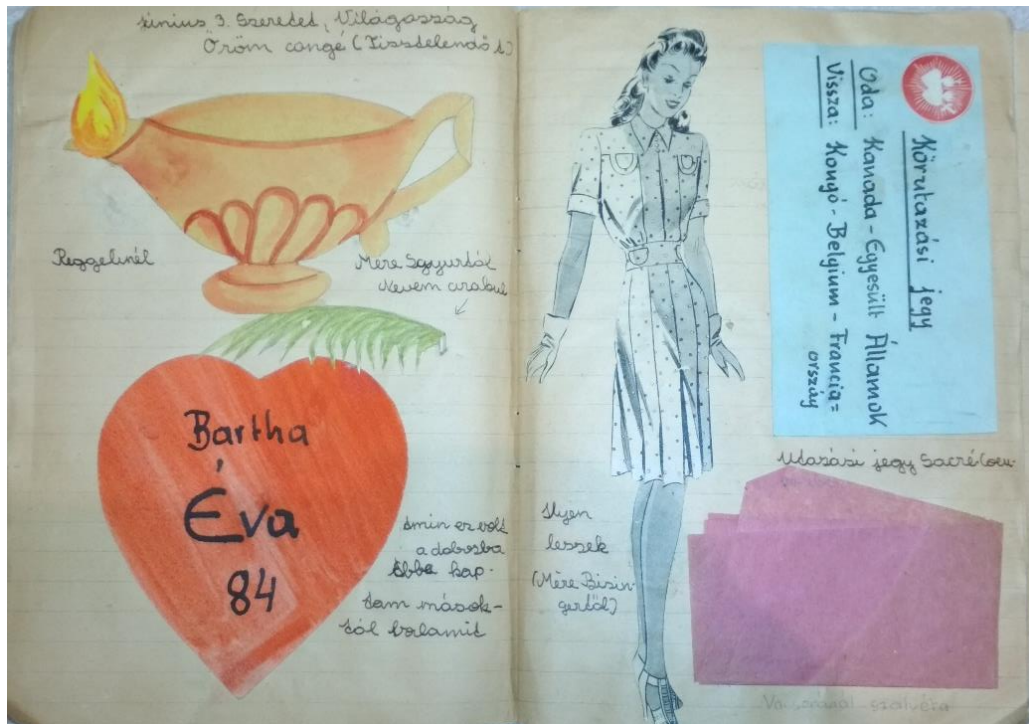 június 3. Szeretet, Világosság
Öröm congé (Tisztelendőt)
Reggelinél
Mère
Nevem arabul
Bartha
Éva
84
Amin ez volt
a dobozba
ebbe kap-
tam mások-
tól valamit
Ilyen
leszek
(Mère Bisin-
gertől)
Körutazási jegy
Oda: Kanada - Egyesült Államok
Vissza: Kongó - Belgium - Francia=
ország
Utazási jegy Sacré Coeu-
szalvéta